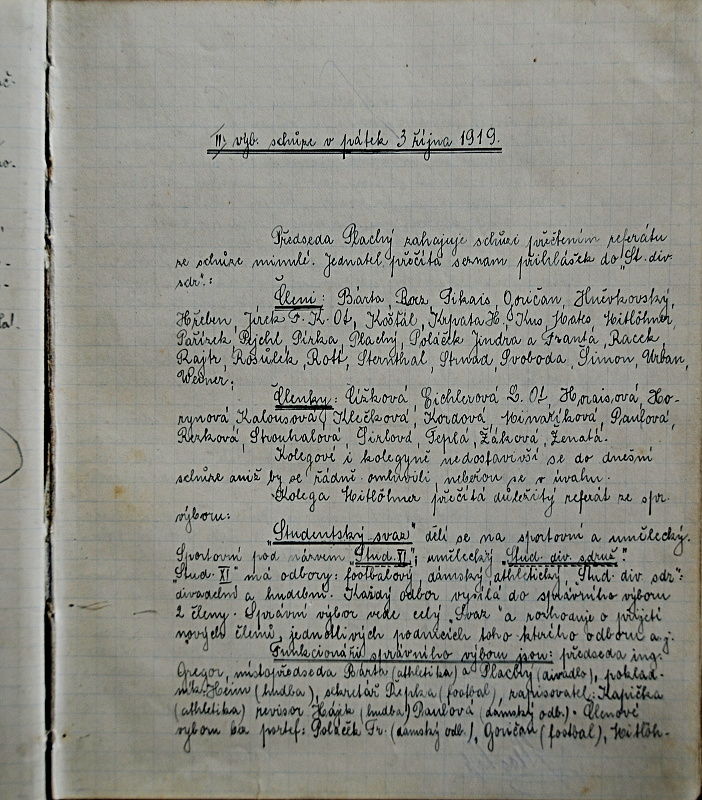 II) výb. schůze v pátek 3 října 1919.
Předseda Plachý zahajuje schůzi přečtením referátu
ze schůze minulé. Jednatel přečítá seznam přihlášek do „St. div.
sdr.":
Členi: Bárta, Goričan, Hněvkovský,
Hřeben, Jirek F. K. Ot, Košťál, Krpata H., Kus, Mitlöhner,
Pařízek, Pejchl, Pirka, Plachý, Poláček Jindra a Franta, Racek,
Rajtr, Rosůlek, Rott, Sternthal, Strnad, Svoboda, Šimon, Urban,
Wegner;
Členky: Čížková, Eichlerová L. Ot, Ho-
rynová, Kalousová, Klečková, Kordová, Minaříková, Paulová,
Rezková, Strouhalová, Teplá, Žáková, Ženatá.
Kolegové i kolegyně nedostavivší se do dnešní
schůze aniž by se řádně omluvili, neberou se v úvahu.
Kolega Mitlöhner přečítá důležitý referát ze spr.
výboru:
„Studentský svaz" dělí se na sportovní a umělecký.
Sportovní pod názvem „Stud. XI"; umělecký „Stud. div. sdruž."
„Stud. XI" má odbory: footbalový, dámský, athletický, „Stud. div. sdr":
divadelní a hudební. Každý odbor vysílá do správního výboru
2 členy. Správní výbor vede celý „Svaz" a rozhoduje o přijetí
nových členů, jednotlivých podnicích toho kterého odboru a j.
Funkcionáři správního výboru jsou: předseda ing.
Gregor, místopředseda Bárta (athletika) a Plachý (divadlo), poklad-
ník: Heim (hudba), sekretář Řepka (footbal), zapisovatel: Kapička
(athletika) revisor Hájek (hudba) Paulová (dámský odb.). Členové
výboru bez portef: Poláček Fr. (dámský odb.), Goričan (footbal), Mitlöh-